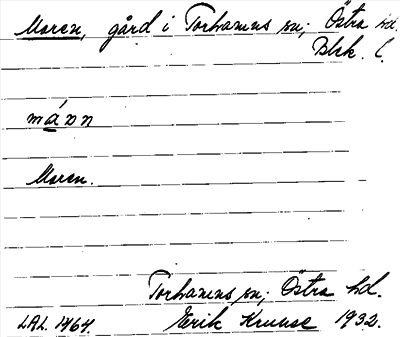 Moren, gård i Torhamns sn; Östra hd.
Blek. l.
Moren.
Torhamns sn; Östra hd.
LAL. 1464. Erik Kruuse 1932.